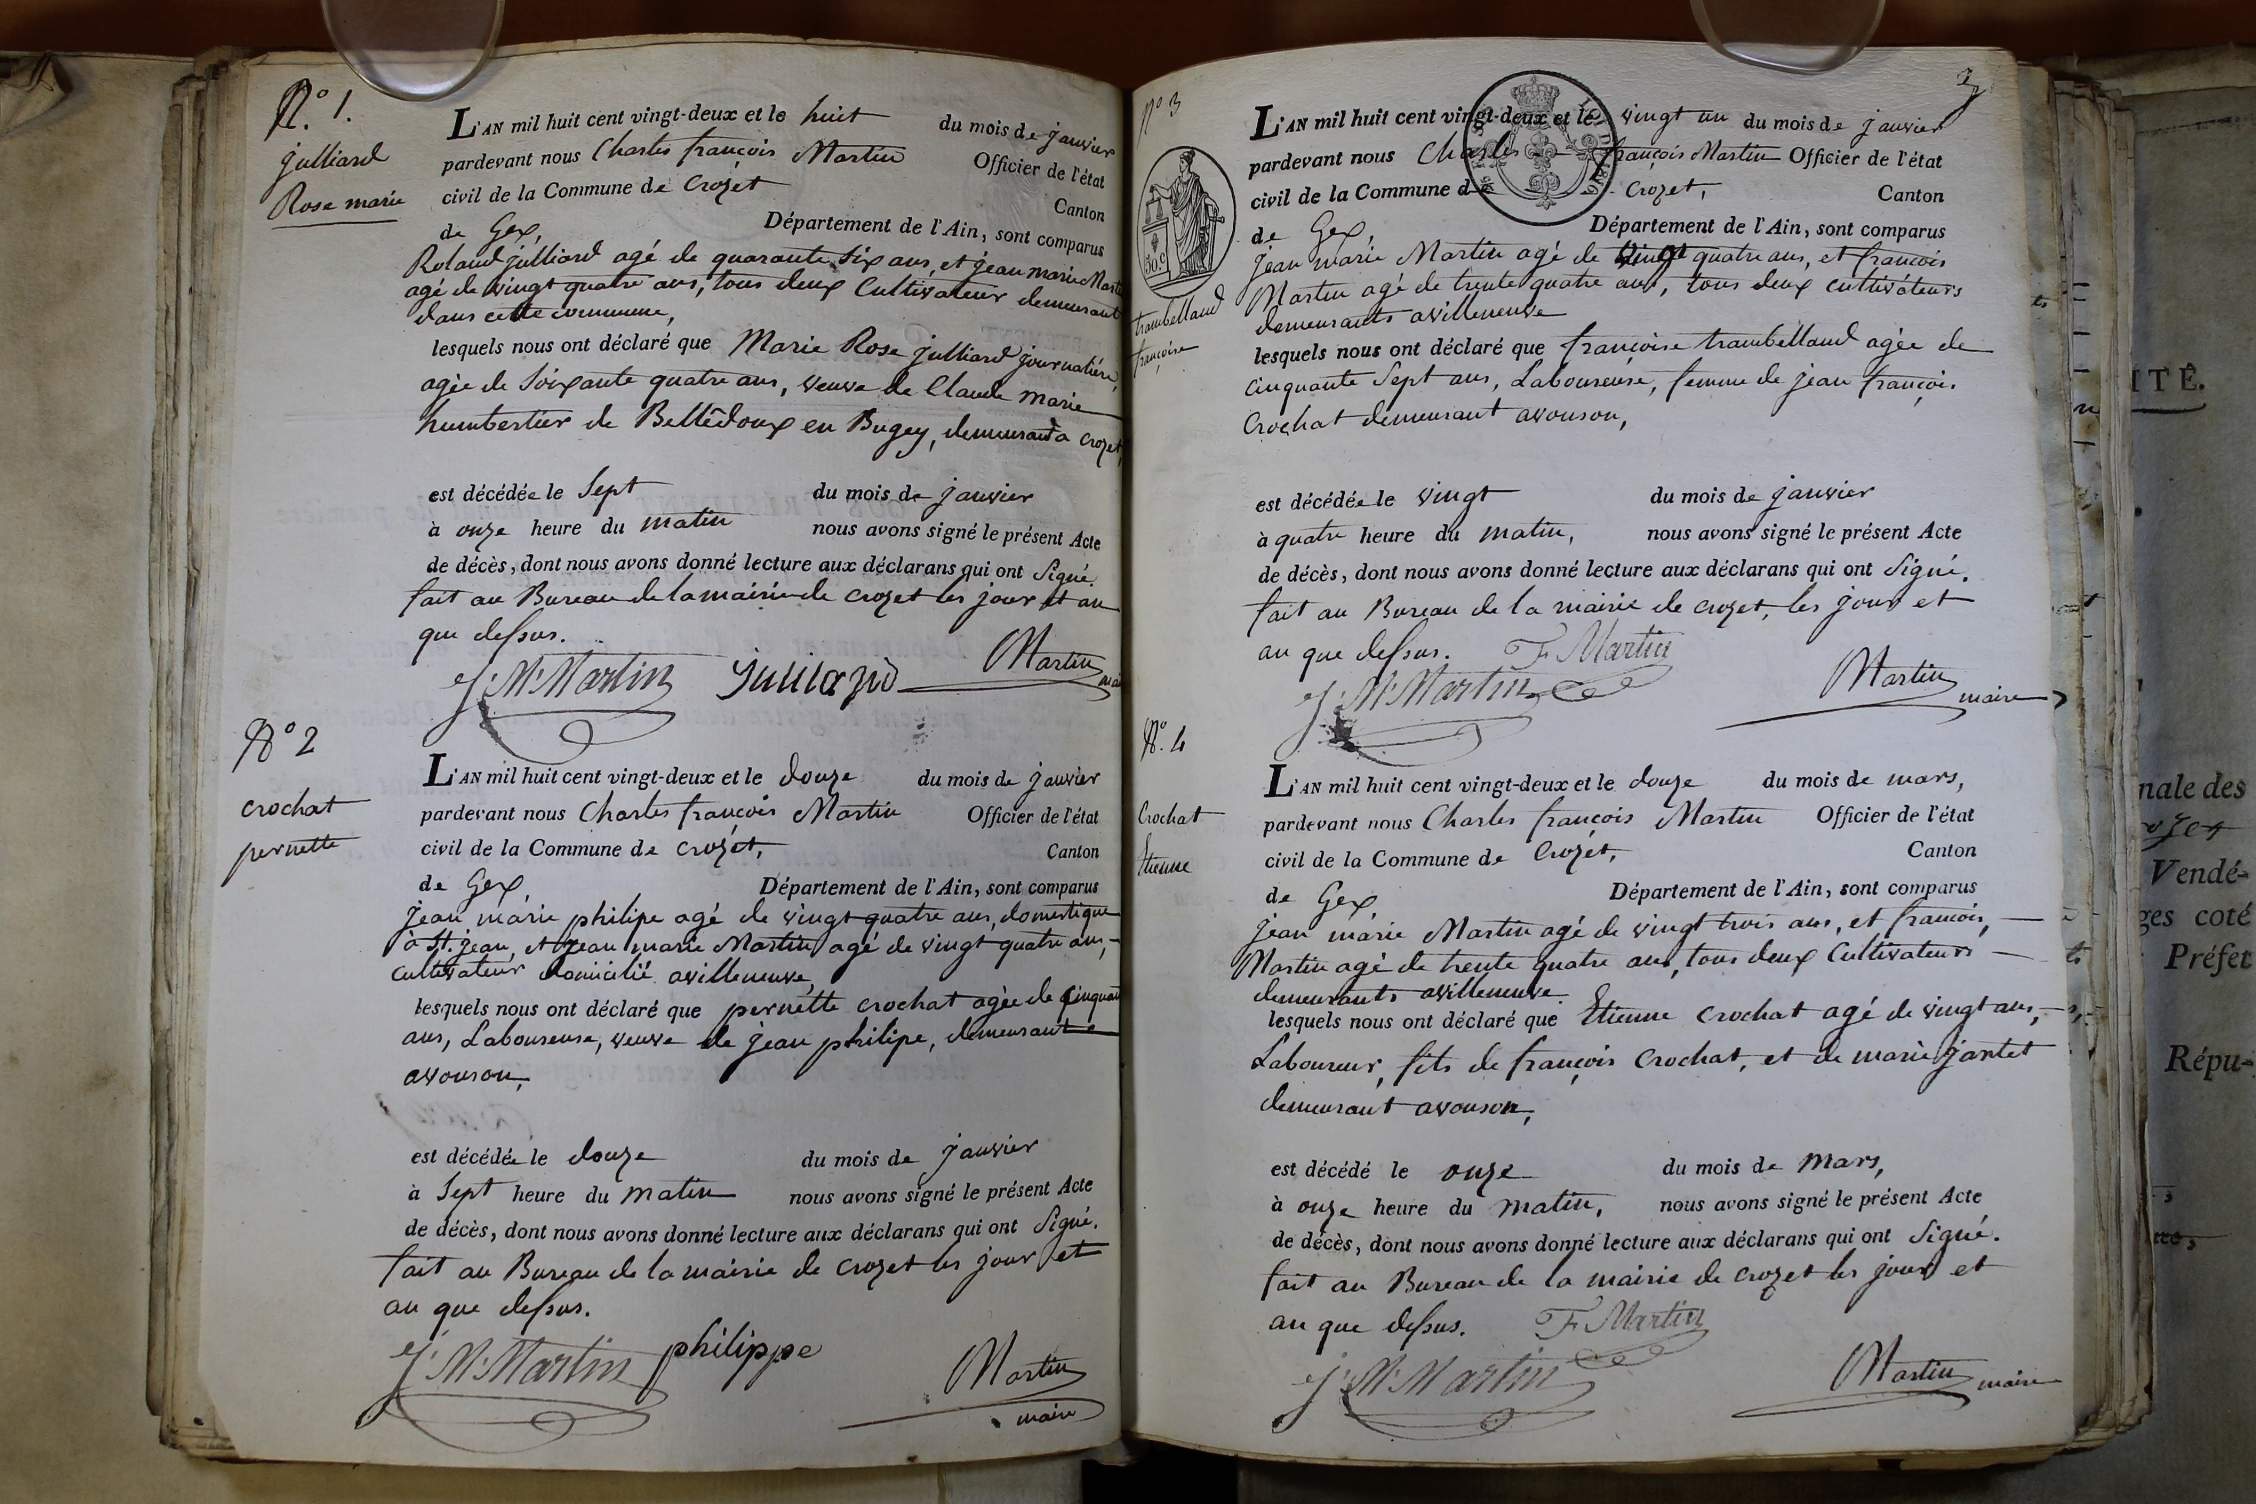 N.º 1.
julliard
Rose marie
L'AN mil huit cent vingt-deux et le huit du mois de janvier
pardevant nous Charles françois Martin Officier de l'état
civil de la Commune de Crozet Canton
de Gex, Département de l'Ain, sont comparus
Roland julliard agé de quarante six ans, et jean marie Martin
agé de vingt quatre ans, tous deux Cultivateur demeurant
dans cette commune,
lesquels nous ont déclaré que Marie Rose julliard journalière,
agée de Soixante quatre ans, veuve de Claude marie
humbertier de Bellêdoux en Bugey, demeurant a crozet,
est décédée le Sept du mois de janvier
à onze heure du matin nous avons signé le présent Acte
de décès, dont nous avons donné lecture aux déclarans qui ont Signé.
fait au Bureau de la mairie de crozet les jour et an
que dessus.
J. M. Martin Julliard Martin
N.º 2
crochat
pernette
L'AN mil huit cent vingt-deux et le douze du mois de janvier
pardevant nous Charles françois Martin Officier de l'état
civil de la Commune de crozet, Canton
de Gex, Département de l'Ain, sont comparus
jean marie philipe agé de vingt quatre ans, domestique
à St. jean, et jean marie Martin agé de vingt quatre ans,
cultivateur domicilié avilleneuve,
lesquels nous ont déclaré que pernette crochat agée de cinquante
ans, Laboureuse, veuve de jean philipe, demeurante
avouson,
est décédée le douze du mois de janvier
à Sept heure du matin nous avons signé le présent Acte
de décès, dont nous avons donné lecture aux déclarans qui ont Signé.
fait au Bureau de la mairie de crozet les jour et
an que dessus.
J. M. Martin philippe Martin
maire
Nº 3
50.c
trambelland
françoise
L'AN mil huit cent vingt-deux et le vingt un du mois de janvier
pardevant nous Charles françois Martin Officier de l'état
civil de la Commune de Crozet, Canton
de Gex, Département de l'Ain, sont comparus
jean marie Martin agé de vingt quatre ans, et françois
Martin agé de trente quatre ans, tous deux cultivateurs
demeurants avilleneuve
lesquels nous ont déclaré que françoise trambelland agée de
cinquante Sept ans, Laboureuse, femme de jean françois
Crochat demeurant avouson,
est décédée le vingt du mois de janvier
à quatre heure du matin, nous avons signé le présent Acte
de décès, dont nous avons donné lecture aux déclarans qui ont Signé.
fait au Bureau de la mairie de crozet, les jour et
an que dessus. F. Martin
J. M. Martin Martin
maire
N.º 4
Crochat
Etienne
L'AN mil huit cent vingt-deux et le douze du mois de mars,
pardevant nous Charles françois Martin Officier de l'état
civil de la Commune de Crozet, Canton
de Gex Département de l'Ain, sont comparus
jean marie Martin agé de vingt trois ans, et françois,
Martin agé de trente quatre ans, tous deux Cultivateurs
demeurants avilleneuve.
lesquels nous ont déclaré que Etienne Crochat agé de vingt ans,
Laboureur, fils de françois Crochat, et de marie jantet
demeurant avouson,
est décédé le onze du mois de mars,
à onze heure du matin, nous avons signé le présent Acte
de décès, dont nous avons donné lecture aux déclarans qui ont Signé.
fait au Bureau de la mairie de crozet les jour et
an que dessus. F. Martin
J. M. Martin Martin
maire
ITÉ.
nale des
Vendé-
ges coté
Préfet
Répu-